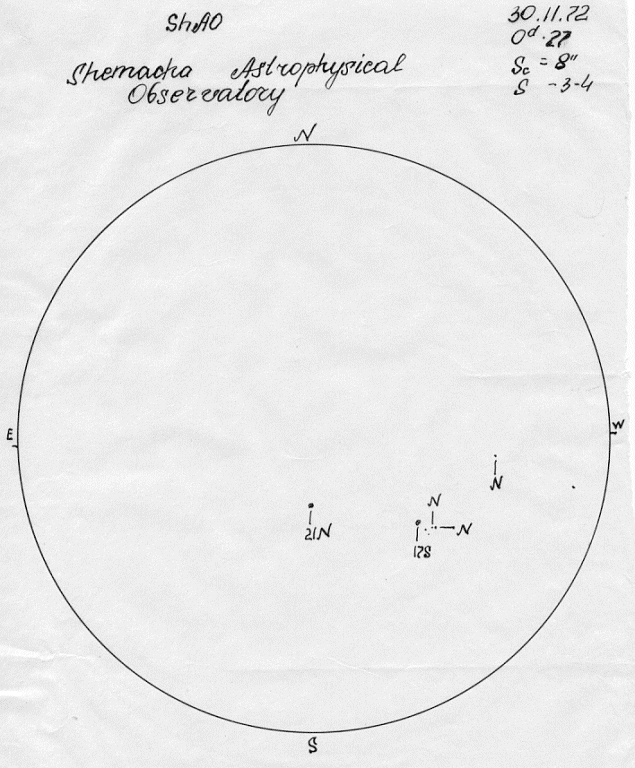 ShAO
30.11.72
0ᵈ.27
Sc = 8"
S -3-4
Shemacha Astrophysical
Observatory
N
E
W
N
N
N
21N
17S
S